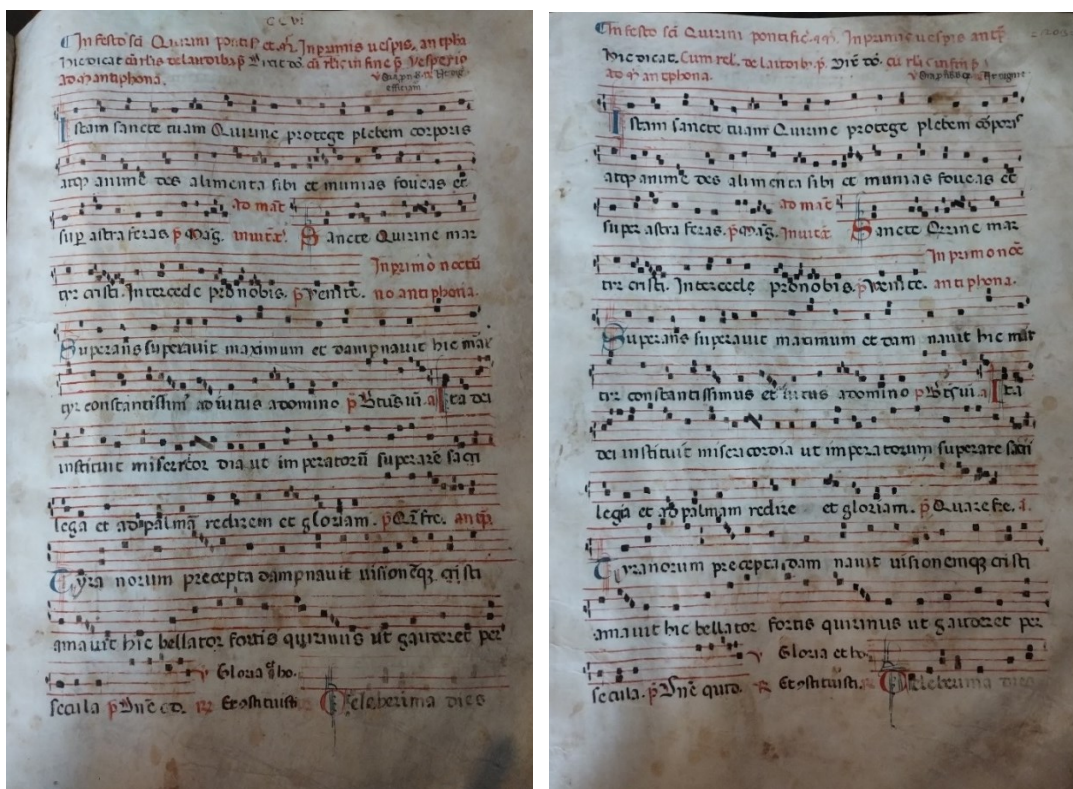 CCVI
In festo sci Quirini pontif et mr. In primis uespis, an tpha
hic dicat cu rlis de laudib p
ad mantiphona.
efficiam
Istam sancte tuam Quirine protege plebem corporis
atq anime des alimenta sibi et munias foueas et
sup astra feras. p Mag. inuitat. Sancte Quirine mar
In primo noctu
tyr cristi. Intercede pro nobis. p Venite. no antiphona.
Superans superauit maximum et dampnauit hic mar
tyr constantissim ad uitus a domino p Btus ui. a Ita dei
instituit misericor dia ut imperatoru superare sacri
lega et ad palma redirem et gloriam. p Qr fre. antip.
Tyra norum precepta dampnauit uisioneq cristi
amauit hic bellator fortis quirinus ut gauderet per
secula p Dne qd. Gloria et ho. Celeberima dies
In festo sci Quirini pontific mr. In primis uespis antip
hic dicat. Cum rel. de laudib. p. Dix do. cu rlis in fin p
ad m antiphona.
Istam sancte tuam Quirine protege plebem coporis
atq anime des alimenta sibi et munias foueas et
super astra feras. p Mag. Inuitat Sancte Qirine mar
In primo noc
tir cristi. Intercede pro nobis. p Venite. antiphona.
Superans superauit maximum et dam nauit hic mar
tir constantissimus et uitus a domino p Bts ui. a Ita
dei instituit misericordia ut imperatorum superare sacri
lega et ad palmam redire et gloriam. p Quare fre. a.
Tyranorum precepta dam nauit uisionemq cristi
amauit hic bellator fortis quirinus ut gauderet per
Gloria et ho.
secula. p Dne quid. Celeberima dies